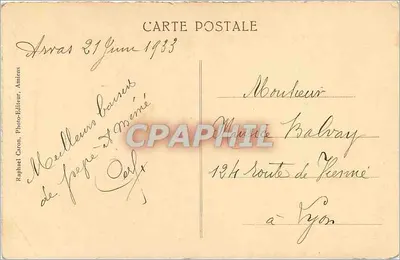 CARTE POSTALE
Arras 21 Juin 1933
Raphael Caron, Photo-Editeur, Amiens
Meilleurs baisers
de pépé et mémé
CPAPHIL
Monsieur
Maurice Balvay
124 route de Vienne
à Lyon